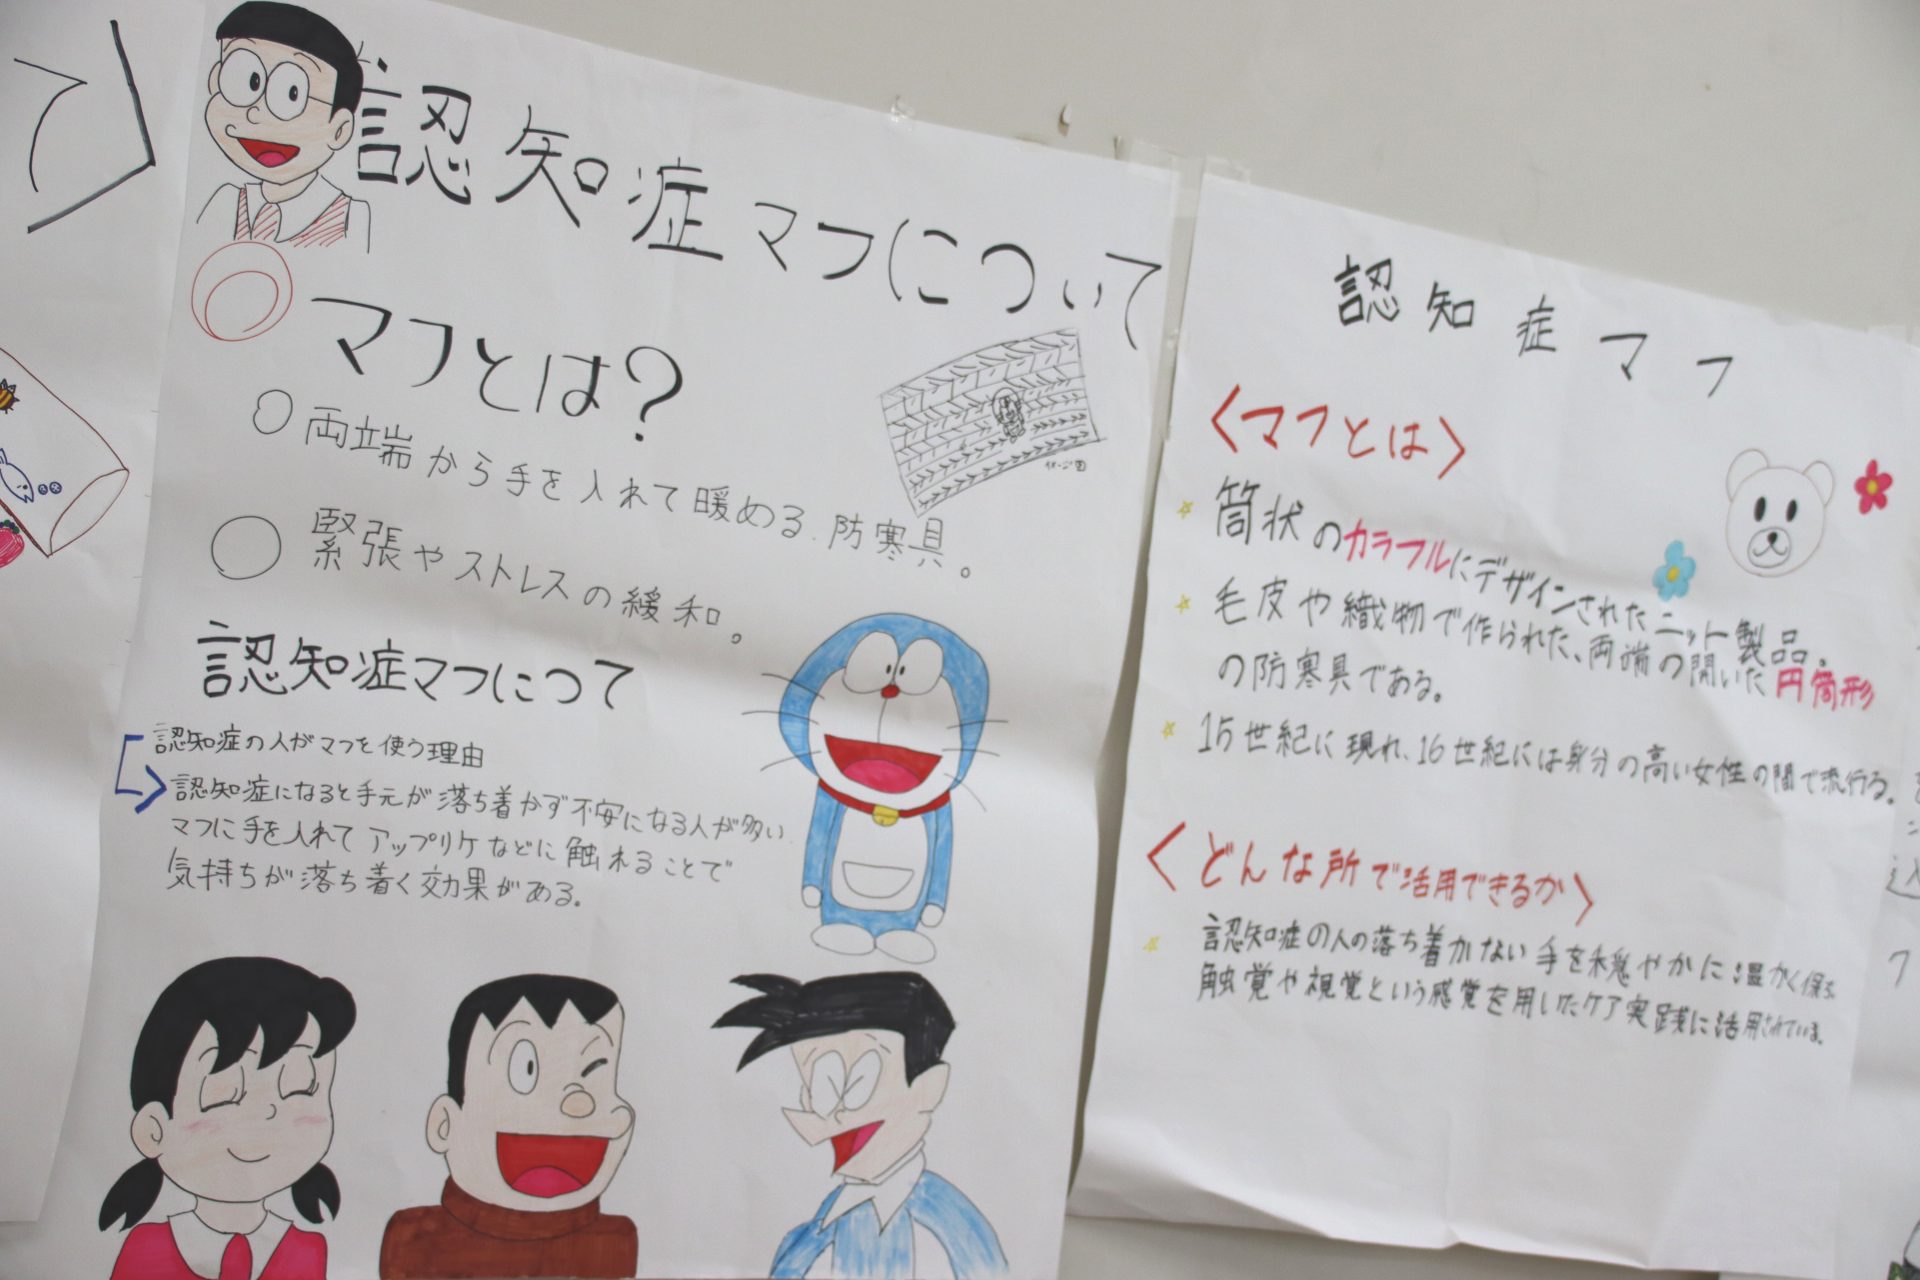 認知症マフについて
マフとは?
両端から手を入れて暖める、防寒具。
緊張やストレスの緩和。
イメージ図
認知症マフにつて
認知症の人がマフを使う理由
認知症になると手元が落ち着かず不安になる人が多い
マフに手を入れてアップリケなどに触れることで
気持ちが落ち着く効果がある。
認知症マフ
<マフとは>
筒状のカラフルにデザインされたニット製品。
毛皮や織物で作られた、両端の開いた円筒形
の防寒具である。
15世紀に現れ、16世紀には身分の高い女性の間で流行る。
<どんな所で活用できるか>
認知症の人の落ち着かない手を穏やかに温かく保ち
触覚や視覚という感覚を用いたケア実践に活用されている。
込